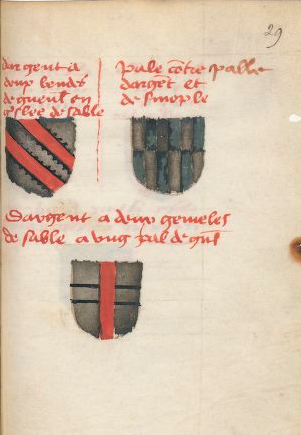 29
dargent a
deux bendes
de gueul en
de sable
pale contre palle
dargent et
de sinople
Dargent a deux gemeles
de sable a ung pal de gul